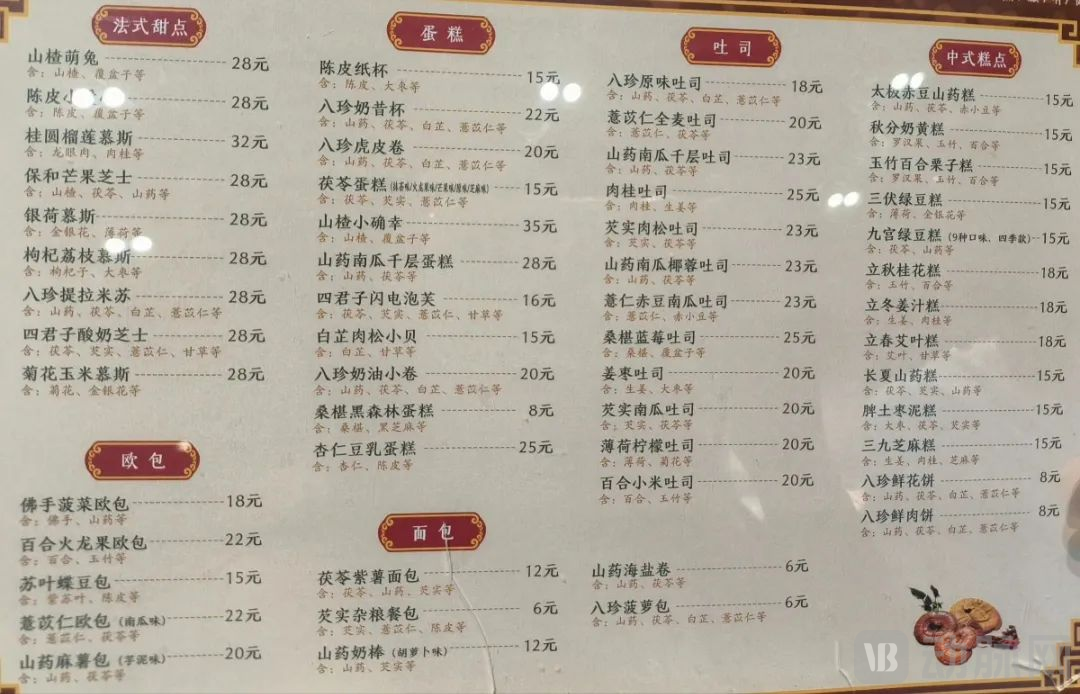 法式甜点
山楂萌兔 28元
含：山楂、覆盆子等
陈皮小 28元
含：陈皮、覆盆子等
桂圆榴莲慕斯 32元
含：龙眼肉、肉桂等
保和芒果芝士 28元
含：山楂、茯苓、山药等
银荷慕斯 28元
含：金银花、薄荷等
枸杞荔枝慕斯 28元
含：枸杞子、大枣等
八珍提拉米苏 28元
含：山药、茯苓、白芷、薏苡仁等
四君子酸奶芝士 28元
含：茯苓、芡实、薏苡仁、甘草等
菊花玉米慕斯 28元
含：菊花、金银花等
欧包
佛手菠菜欧包 18元
含：佛手、山药等
百合火龙果欧包 22元
含：百合、玉竹等
苏叶蝶豆包 15元
含：紫苏叶、陈皮等
薏苡仁欧包（南瓜味） 22元
含：薏苡仁、茯苓等
山药麻薯包（芋泥味） 20元
含：山药、茯苓等
蛋糕
陈皮纸杯 15元
含：陈皮、大枣等
八珍奶昔杯 22元
含：山药、茯苓、白芷、薏苡仁等
八珍虎皮卷 20元
含：山药、茯苓、白芷、薏苡仁等
茯苓蛋糕（抹茶味/火龙果味/芒果味/原味/芝麻味） 15元
含：茯苓、芡实、薏苡仁等
山楂小确幸 35元
含：山楂、覆盆子等
山药南瓜千层蛋糕 28元
含：山药、茯苓等
四君子闪电泡芙 16元
含：茯苓、芡实、薏苡仁、甘草等
白芷肉松小贝 15元
含：白芷、甘草等
八珍奶油小卷 20元
含：山药、茯苓、白芷、薏苡仁等
桑椹黑森林蛋糕 8元
含：桑椹、黑芝麻等
杏仁豆乳蛋糕 25元
含：杏仁、陈皮等
面包
茯苓紫薯面包 12元
含：茯苓、山药、芡实等
芡实杂粮餐包 6元
含：芡实、薏苡仁、陈皮等
山药奶棒（胡萝卜味） 12元
含：山药、芡实等
山药海盐卷 6元
含：山药、茯苓等
八珍菠萝包 6元
含：山药、茯苓、白芷、薏苡仁等
吐司
八珍原味吐司 18元
含：山药、茯苓、白芷、薏苡仁等
薏苡仁全麦吐司 20元
含：薏苡仁、茯苓等
山药南瓜千层吐司 23元
含：山药、茯苓等
肉桂吐司 25元
含：肉桂、生姜等
芡实肉松吐司 23元
含：芡实、茯苓等
山药南瓜椰蓉吐司 23元
含：山药、茯苓等
薏仁赤豆南瓜吐司 23元
含：薏苡仁、赤小豆等
桑椹蓝莓吐司 25元
含：桑椹、覆盆子等
姜枣吐司 20元
含：生姜、大枣等
芡实南瓜吐司 20元
含：芡实、茯苓等
薄荷柠檬吐司 20元
含：薄荷、菊花等
百合小米吐司 20元
含：百合、玉竹等
中式糕点
太极赤豆山药糕 15元
含：山药、茯苓、赤小豆等
秋分奶黄糕 15元
含：罗汉果、玉竹、百合等
玉竹百合栗子糕 15元
含：罗汉果、玉竹、百合等
三伏绿豆糕 15元
含：薄荷、金银花等
九宫绿豆糕（9种口味、四季款） 15元
含：茯苓、山药等
立秋桂花糕 18元
含：玉竹、百合等
立冬姜汁糕 18元
含：生姜、肉桂等
立春艾叶糕 18元
含：艾叶、甘草等
长夏山药糕 15元
含：茯苓、芡实、山药等
脾土枣泥糕 15元
含：大枣、茯苓、芡实等
三九芝麻糕 15元
含：生姜、肉桂、芝麻等
八珍鲜花饼 8元
含：山药、茯苓、白芷、薏苡仁等
八珍鲜肉饼 8元
含：山药、茯苓、白芷、薏苡仁等